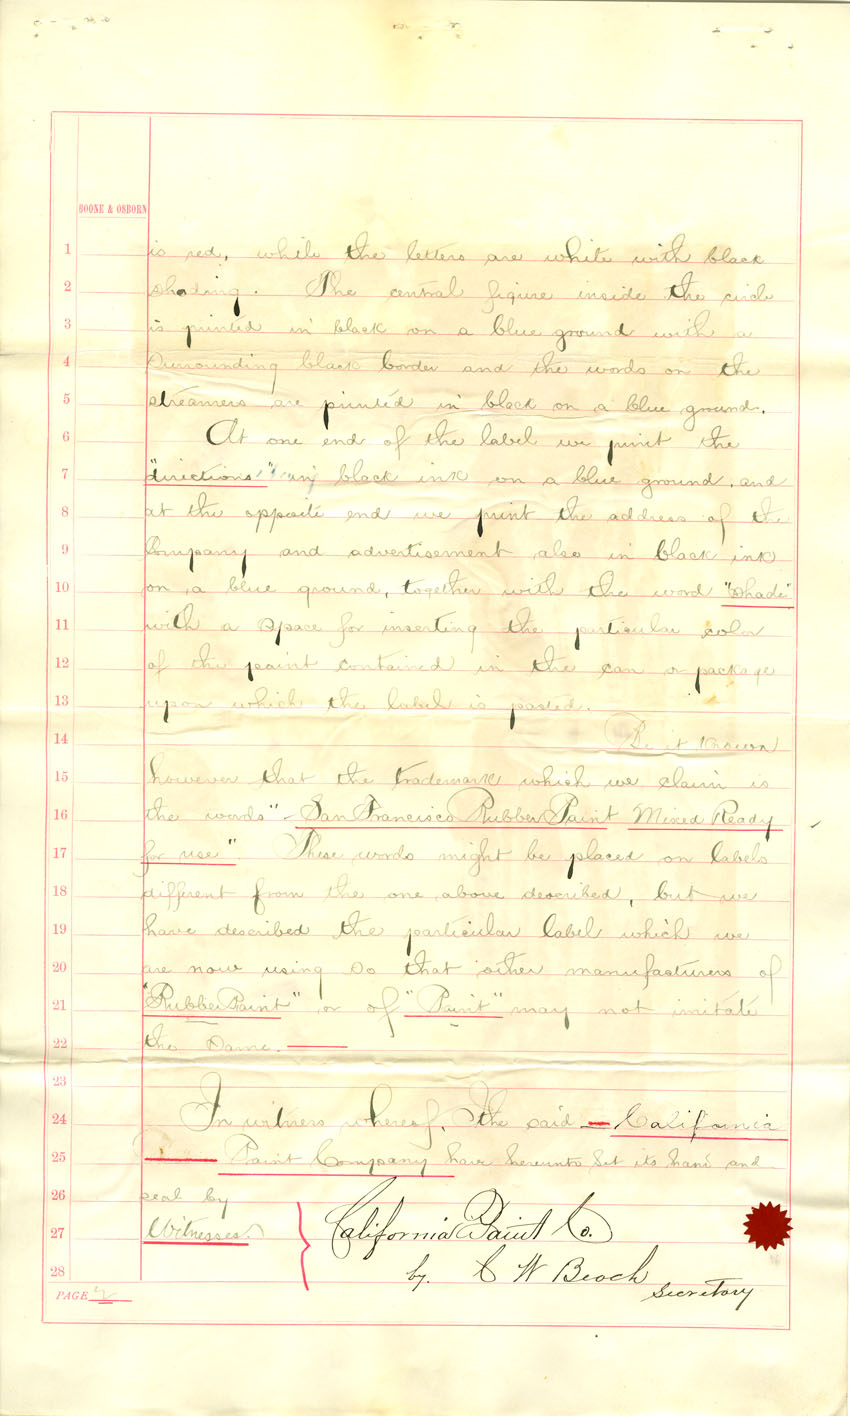 BOONE & OSBORN
1 is red, while the letters are white with black
2 shading. The central figure inside the circle
3 is printed in black on a blue ground with a
4 surrounding black border and the words on the
5 streamers are printed in black on a blue ground.
6 At one end of the label we print the
7 "directions" in black ink on a blue ground, and
8 at the opposite end we print the address of the
9 Company and advertisement also in black ink
10 on a blue ground, together with the word "Shade"
11 with a space for inserting the particular color
12 of the paint contained in the can or package
13 upon which the label is pasted.
14 Be it known
15 however that the trademark which we claim is
16 the words "San Francisco Rubber Paint Mixed Ready
17 for use". These words might be placed on labels
18 different from the one above described, but we
19 have described the particular label which we
20 are now using so that other manufacturers of
21 "Rubber Paint" or of "Paint" may not imitate
22 the same.
23
24 In witness whereof, the said California
25 Paint Company have hereunto set its hand and
26 seal by
27 Witnesses. } California Paint Co.
28 by. C W Beach
Secretary
PAGE 2